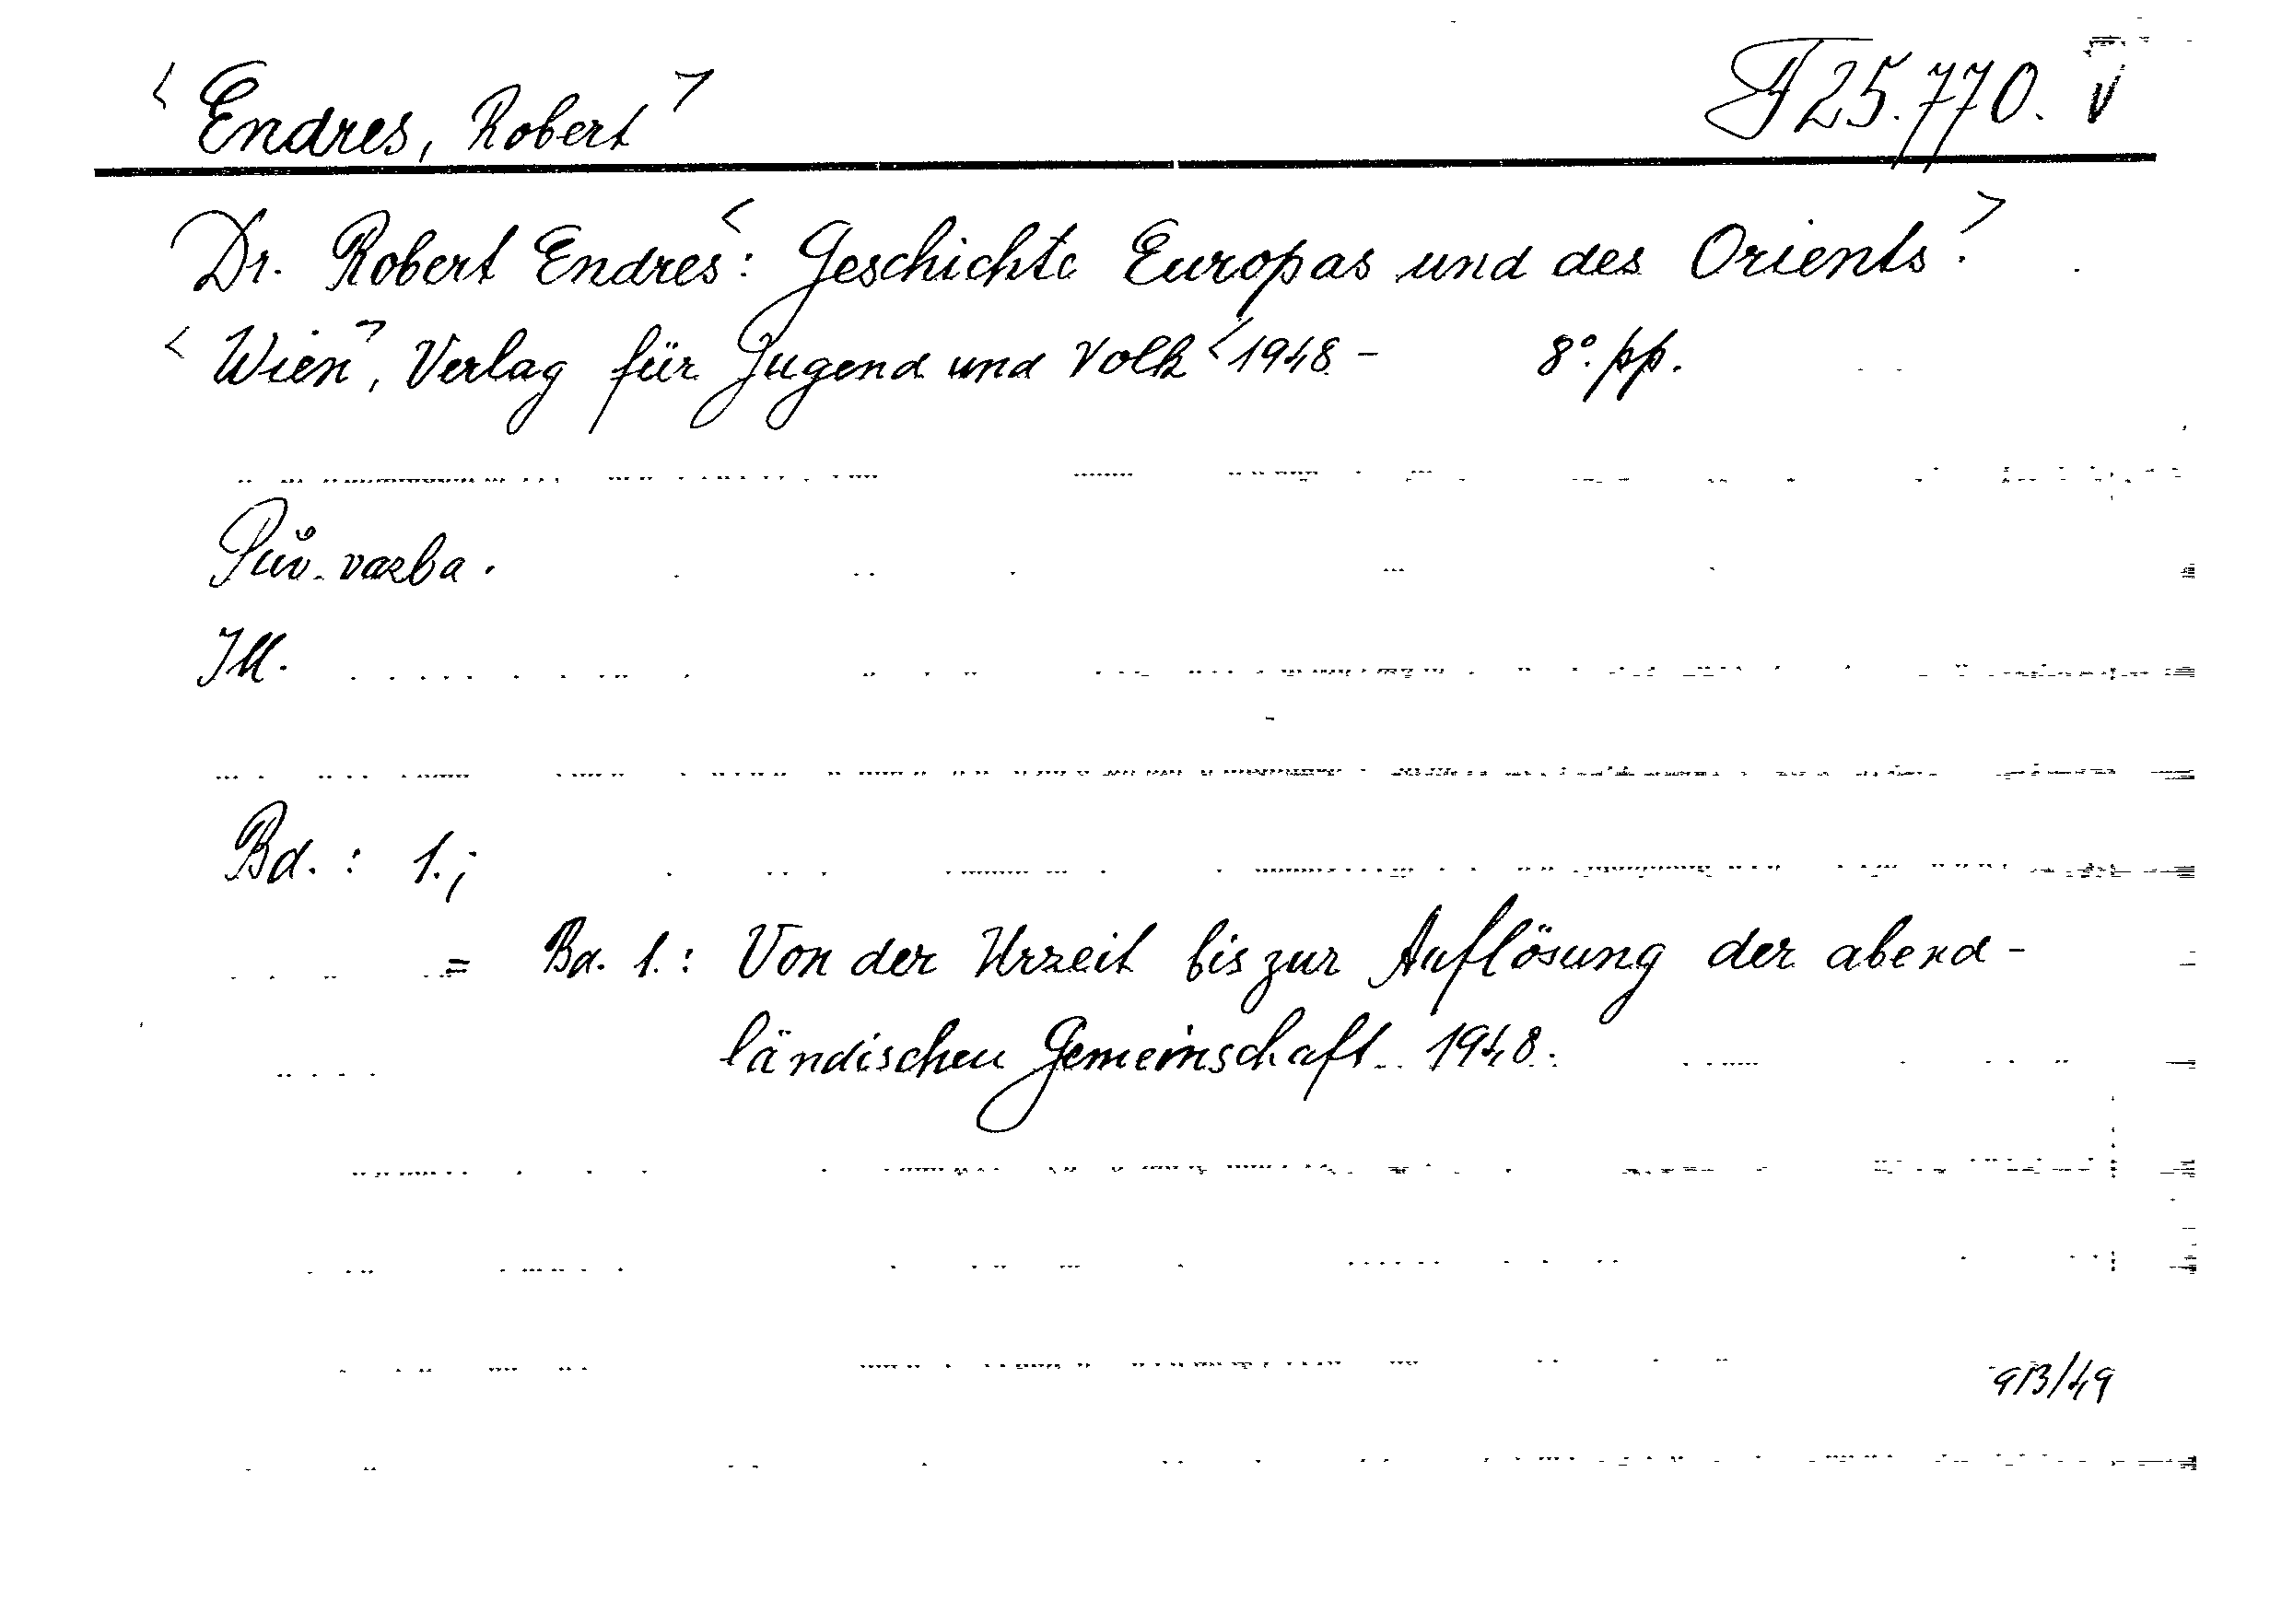 <Endres, Robert> F 25.770. V
Dr. Robert Endres<: Geschichte Europas und des Orients.>
<Wien>, Verlag für Jugend und Volk <1948 - 8°. pp.
Pův. vazba.
Ill.
Bd. : 1.;
= Bd. 1.: Von der Urzeit bis zur Auflösung der abend-
ländischen Gemeinschaft. 1948.
913/49